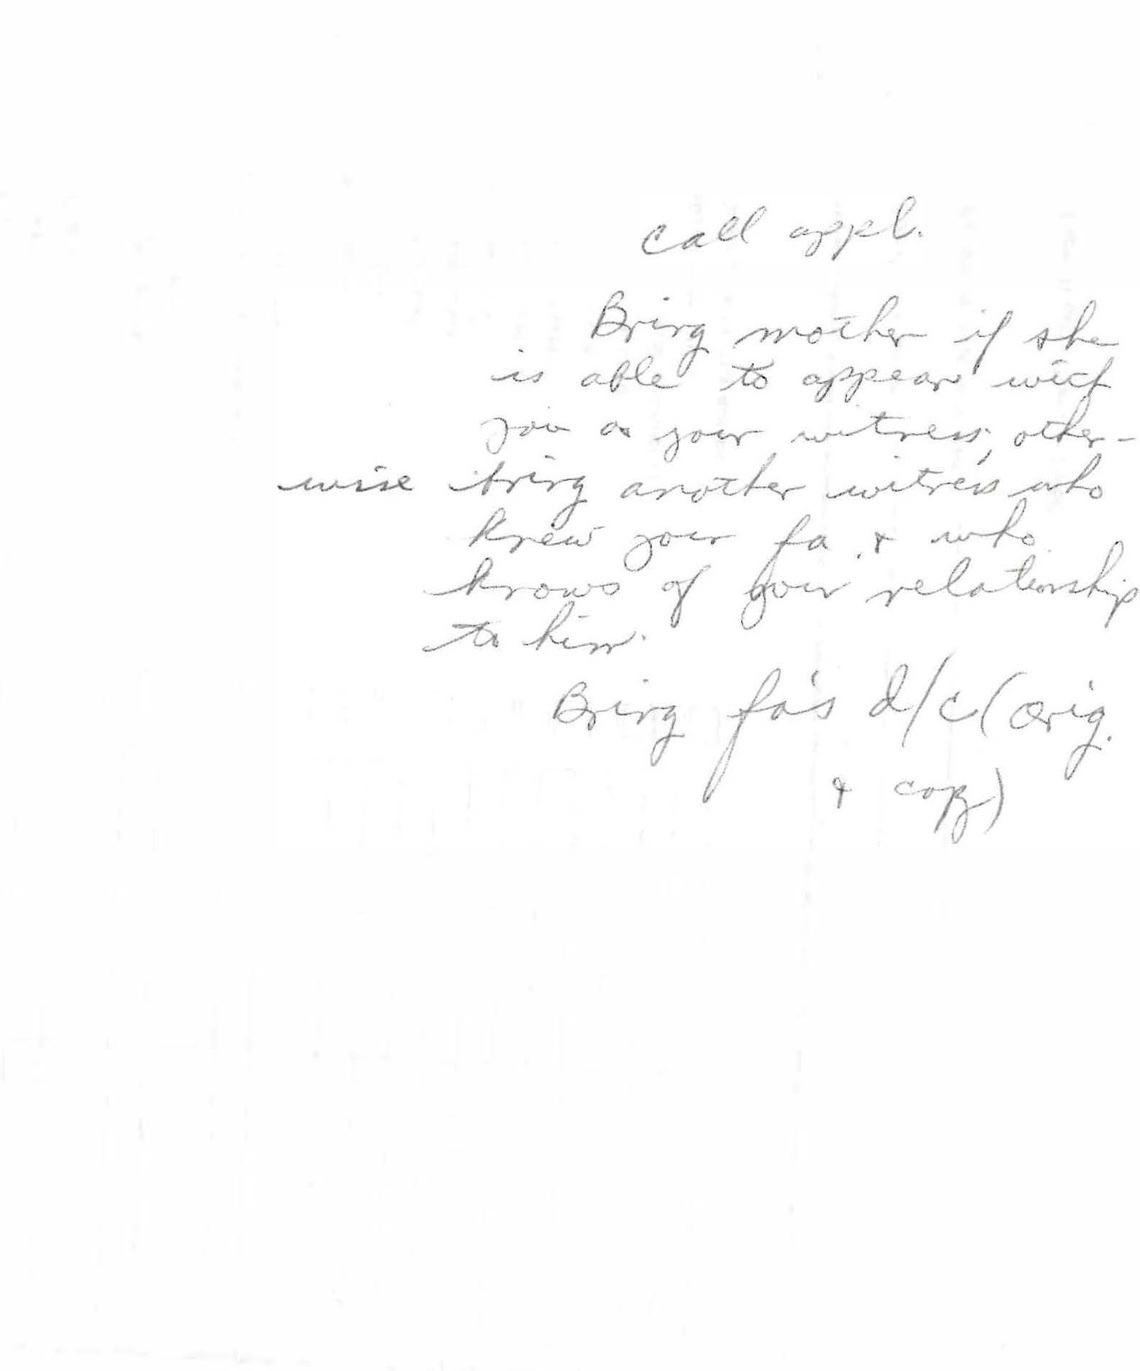 Call appl.
Bring mother if she
is able to appear with
you as your witness, other-
wise bring another witness who
knew your fa. & who
knows of your relationship
to him.
Bring fa's d/c (orig.
& copy)